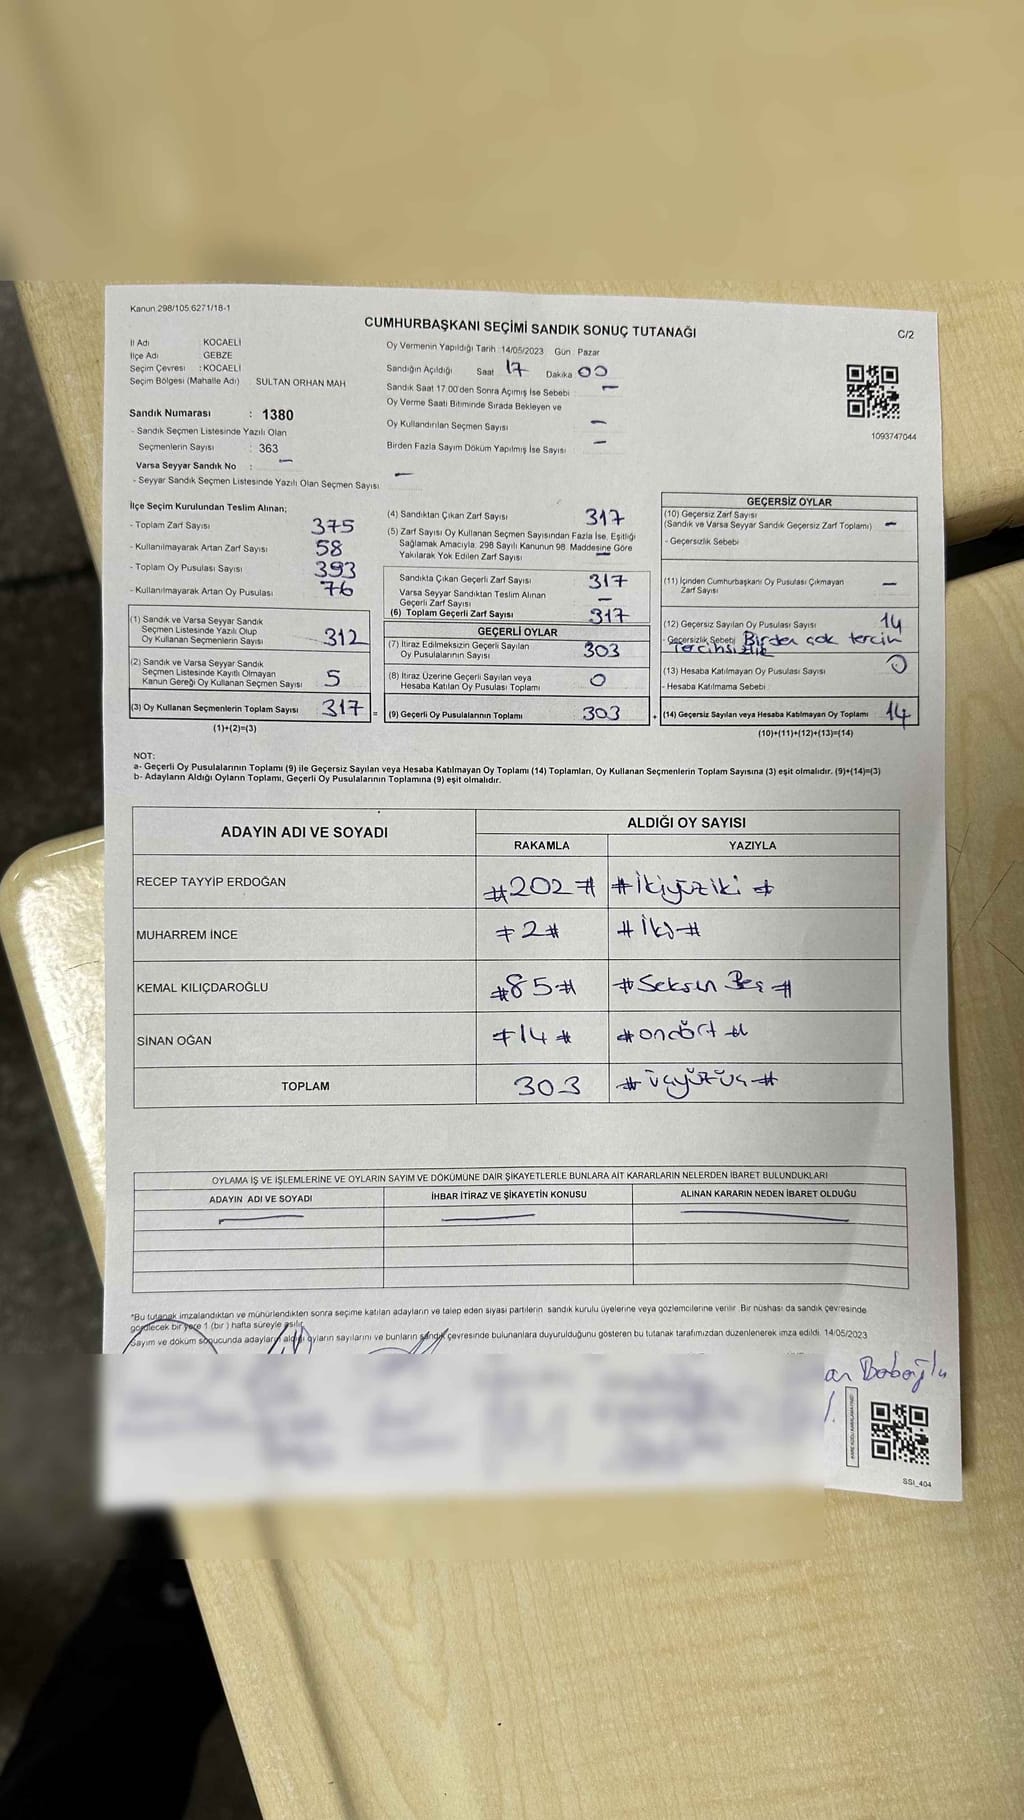 Kanun 298/105,6271/18-1
CUMHURBAŞKANI SEÇİMİ SANDIK SONUÇ TUTANAĞI
C/2
İl Adı KOCAELİ
İlçe Adı GEBZE
Seçim Çevresi : KOCAELİ
Seçim Bölgesi (Mahalle Adı) SULTAN ORHAN MAH
Sandık Numarası : 1380
- Sandık Seçmen Listesinde Yazılı Olan
Seçmenlerin Sayısı : 363
Varsa Seyyar Sandık No : –
- Seyyar Sandık Seçmen Listesinde Yazılı Olan Seçmen Sayısı –
Oy Vermenin Yapıldığı Tarih :14/05/2023 Gün : Pazar
Sandığın Açıldığı Saat 17 Dakika 00
Sandık Saat 17.00'den Sonra Açımış İse Sebebi : –
Oy Verme Saati Bitiminde Sırada Bekleyen ve
Oy Kullandırılan Seçmen Sayısı –
Birden Fazla Sayım Döküm Yapılmış İse Sayısı –
1093747044
İlçe Seçim Kurulundan Teslim Alınan;
- Toplam Zarf Sayısı 375
- Kullanılmayarak Artan Zarf Sayısı 58
- Toplam Oy Pusulası Sayısı 393
- Kullanılmayarak Artan Oy Pusulası 76
(1) Sandık ve Varsa Seyyar Sandık
Seçmen Listesinde Yazılı Olup
Oy Kullanan Seçmenlerin Sayısı 312
(2) Sandık ve Varsa Seyyar Sandık
Seçmen Listesinde Kayıtlı Olmayan
Kanun Gereği Oy Kullanan Seçmen Sayısı 5
(3) Oy Kullanan Seçmenlerin Toplam Sayısı 317 =
(1)+(2)=(3)
(4) Sandıktan Çıkan Zarf Sayısı 317
(5) Zarf Sayısı Oy Kullanan Seçmen Sayısından Fazla İse, Eşitliği
Sağlamak Amacıyla, 298 Sayılı Kanunun 98. Maddesine Göre
Yakılarak Yok Edilen Zarf Sayısı –
Sandıkta Çıkan Geçerli Zarf Sayısı 317
Varsa Seyyar Sandıktan Teslim Alınan
Geçerli Zarf Sayısı –
(6) Toplam Geçerli Zarf Sayısı 317
GEÇERLİ OYLAR
(7) İtiraz Edilmeksizin Geçerli Sayılan
Oy Pusulalarının Sayısı 303
(8) İtiraz Üzerine Geçerli Sayılan veya
Hesaba Katılan Oy Pusulası Toplamı 0
(9) Geçerli Oy Pusulalarının Toplamı 303 +
GEÇERSİZ OYLAR
(10) Geçersiz Zarf Sayısı –
(Sandık ve Varsa Seyyar Sandık Geçersiz Zarf Toplamı)
- Geçersizlik Sebebi
(11) İçinden Cumhurbaşkanı Oy Pusulası Çıkmayan
Zarf Sayısı –
(12) Geçersiz Sayılan Oy Pusulası Sayısı 14
- Geçersizlik Sebebi Birden çok tercih
Tercihsizlik
(13) Hesaba Katılmayan Oy Pusulası Sayısı 0
- Hesaba Katılmama Sebebi
(14) Geçersiz Sayılan veya Hesaba Katılmayan Oy Toplamı 14
(10)+(11)+(12)+(13)=(14)
NOT:
a- Geçerli Oy Pusulalarının Toplamı (9) ile Geçersiz Sayılan veya Hesaba Katılmayan Oy Toplamı (14) Toplamları, Oy Kullanan Seçmenlerin Toplam Sayısına (3) eşit olmalıdır. (9)+(14)=(3)
b- Adayların Aldığı Oyların Toplamı, Geçerli Oy Pusulalarının Toplamına (9) eşit olmalıdır.
ADAYIN ADI VE SOYADI
ALDIĞI OY SAYISI
RAKAMLA YAZIYLA
RECEP TAYYİP ERDOĞAN #202# #İkiyüziki#
MUHARREM İNCE #2# #İki#
KEMAL KILIÇDAROĞLU #85# #Seksen Beş#
SİNAN OĞAN #14# #ondört#
TOPLAM 303 #üçyüzüç#
OYLAMA İŞ VE İŞLEMLERİNE VE OYLARIN SAYIM VE DÖKÜMÜNE DAİR ŞİKAYETLERLE BUNLARA AİT KARARLARIN NELERDEN İBARET BULUNDUKLARI
ADAYIN ADI VE SOYADI İHBAR İTİRAZ VE ŞİKAYETİN KONUSU ALINAN KARARIN NEDEN İBARET OLDUĞU
*Bu tutanak imzalandıktan ve mühürlendikten sonra seçime katılan adayların ve talep eden siyasi partilerin sandık kurulu üyelerine veya gözlemcilerine verilir. Bir nüshası da sandık çevresinde
görülecek bir yere 1 (bir) hafta süreyle asılır.
Sayım ve döküm sonucunda adayların aldığı oyların sayılarını ve bunların sandık çevresinde bulunanlara duyurulduğunu gösteren bu tutanak tarafımızdan düzenlenerek imza edildi. 14/05/2023
SSI_404